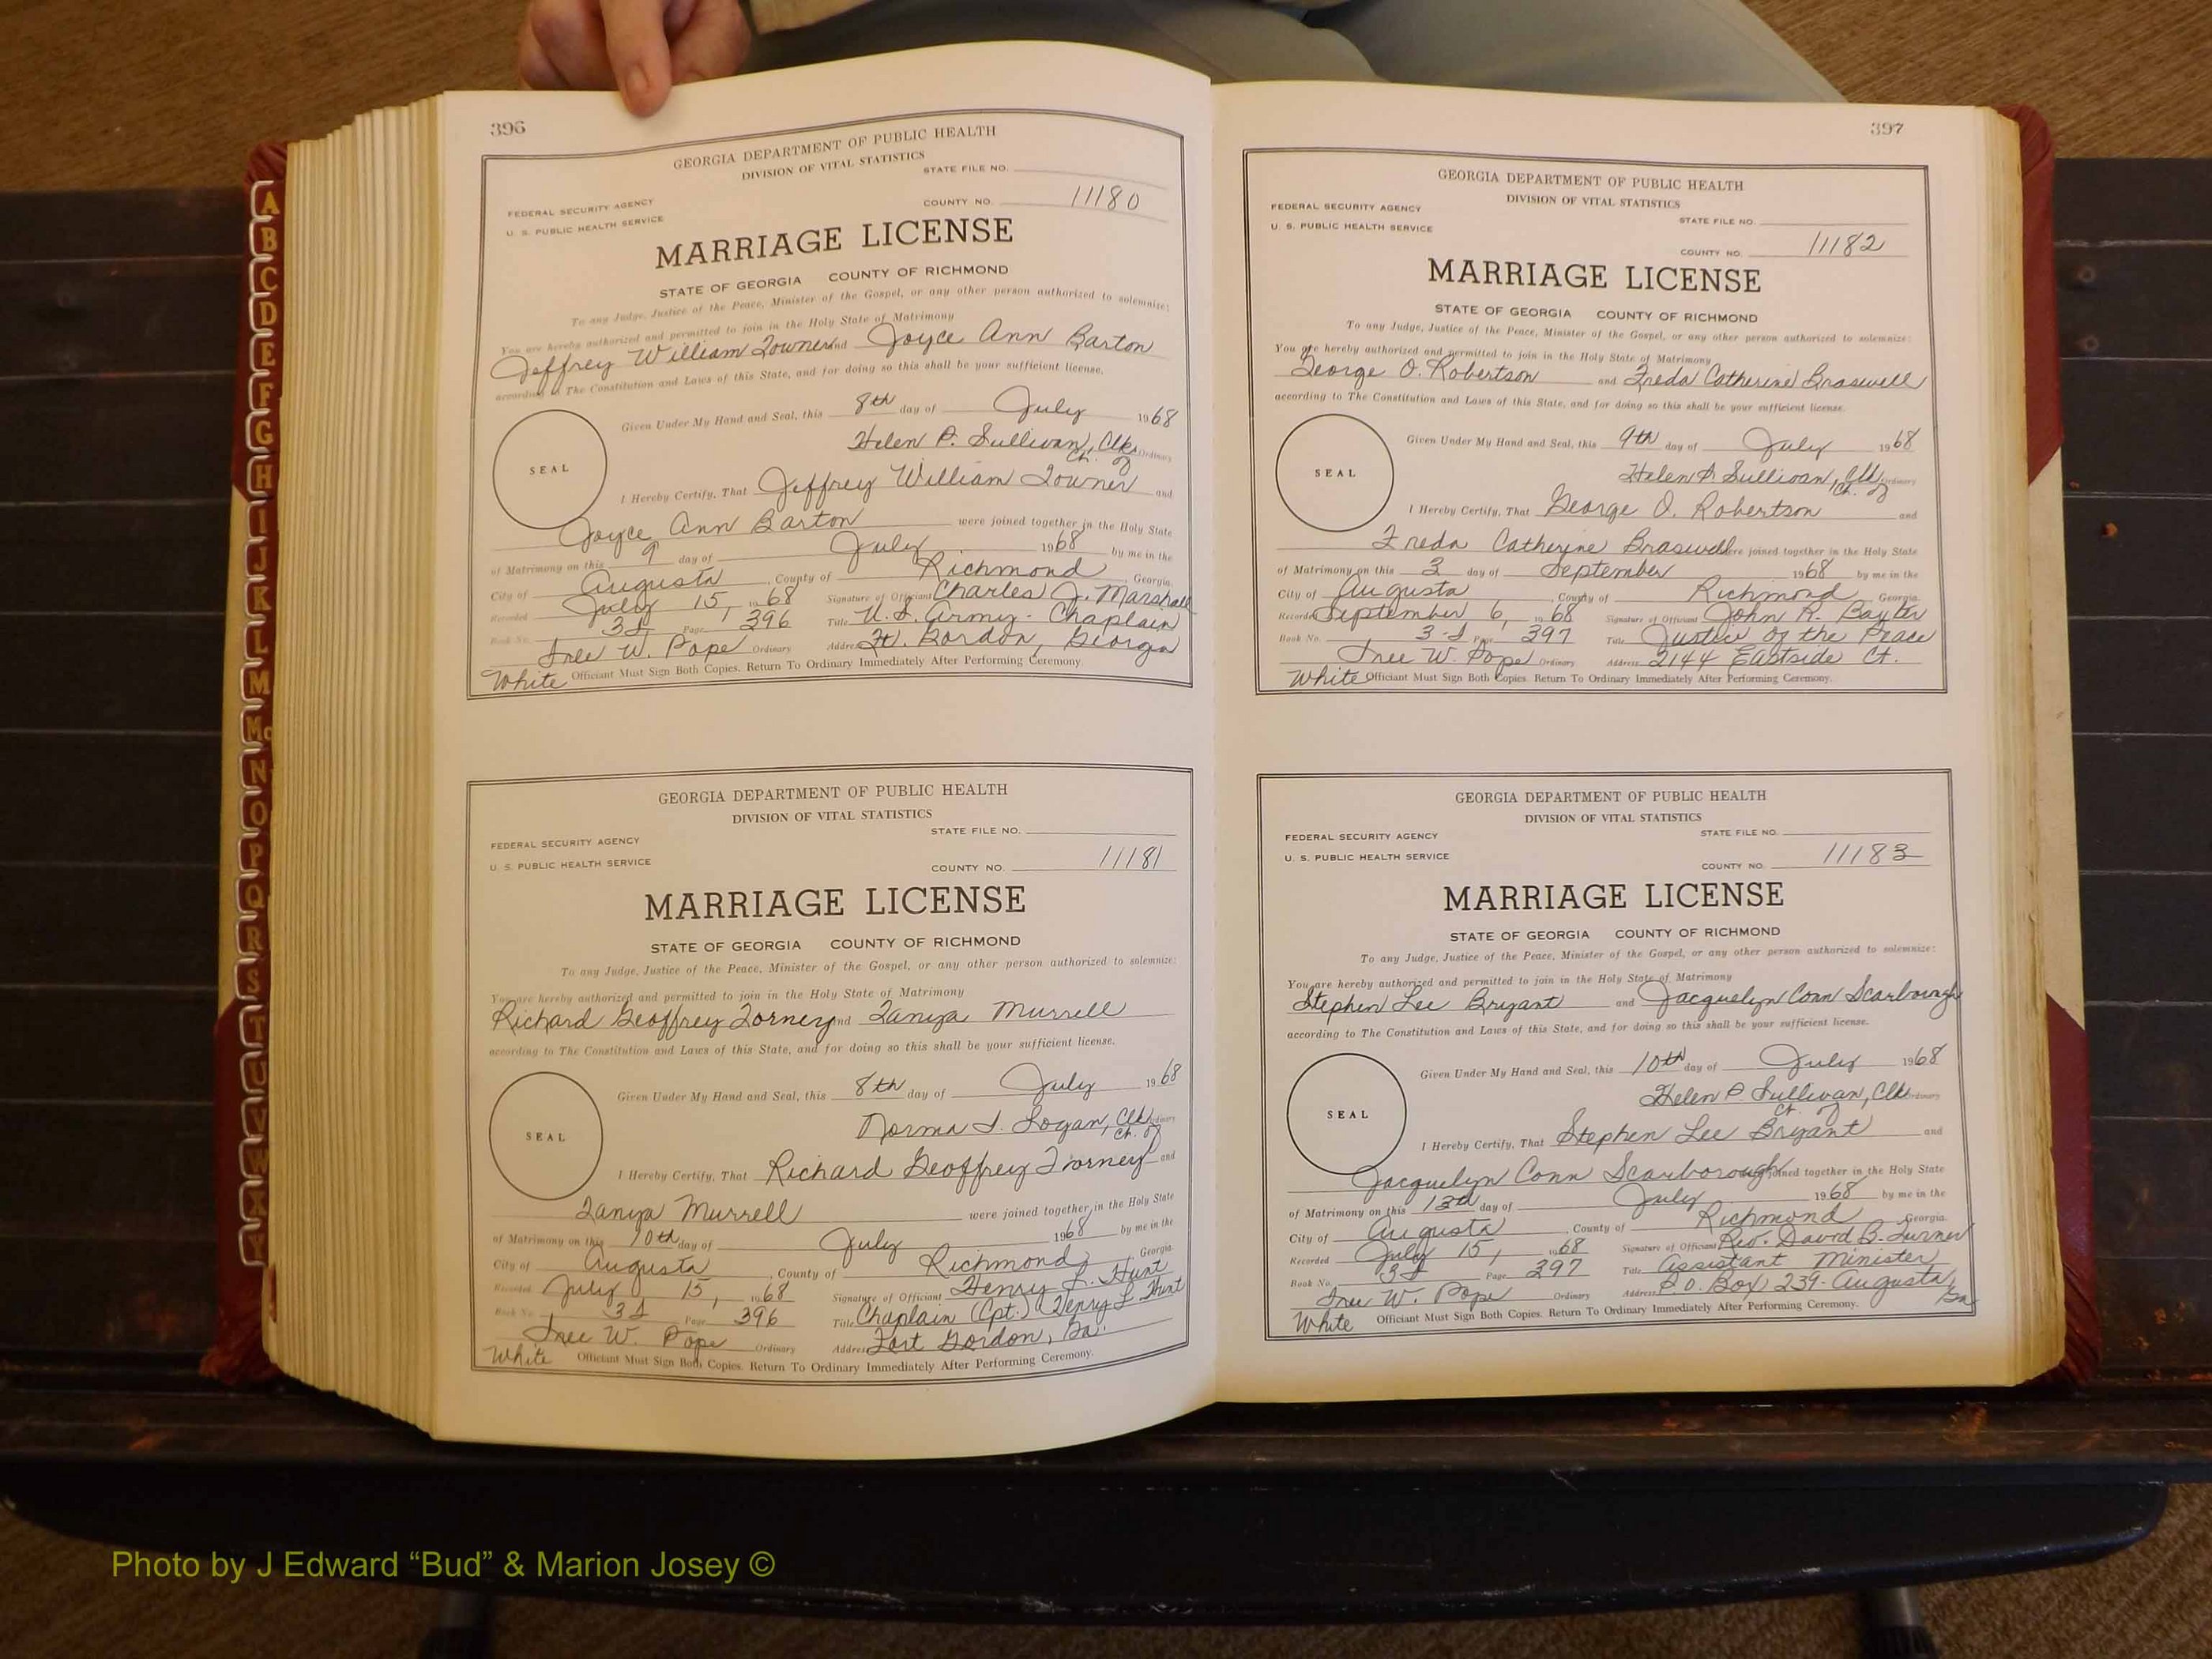 396
GEORGIA DEPARTMENT OF PUBLIC HEALTH
DIVISION OF VITAL STATISTICS
STATE FILE NO.
FEDERAL SECURITY AGENCY
COUNTY NO. 11180
U. S. PUBLIC HEALTH SERVICE
MARRIAGE LICENSE
STATE OF GEORGIA COUNTY OF RICHMOND
To any Judge, Justice of the Peace, Minister of the Gospel, or any other person authorized to solemnize:
You are hereby authorized and permitted to join in the Holy State of Matrimony
Jeffrey William Towner and Joyce Ann Barton
according to The Constitution and Laws of this State, and for doing so this shall be your sufficient license.
Given Under My Hand and Seal, this 8th day of July 1968
Helen P. Sullivan, Clk. Ordinary
Ct. of
SEAL
I Hereby Certify, That Jeffrey William Towner and
Joyce Ann Barton were joined together in the Holy State
of Matrimony on this 9 day of July 1968 by me in the
City of Augusta, County of Richmond, Georgia.
Recorded July 15, 1968 Signature of Officiant Charles J. Marshall
Book No. 3J Page 396 Title U.S. Army - Chaplain
Tree W. Pope Ordinary Address Ft. Gordon, Georgia
White Officiant Must Sign Both Copies. Return To Ordinary Immediately After Performing Ceremony.
GEORGIA DEPARTMENT OF PUBLIC HEALTH
DIVISION OF VITAL STATISTICS
STATE FILE NO.
FEDERAL SECURITY AGENCY
U. S. PUBLIC HEALTH SERVICE
COUNTY NO. 11181
MARRIAGE LICENSE
STATE OF GEORGIA COUNTY OF RICHMOND
To any Judge, Justice of the Peace, Minister of the Gospel, or any other person authorized to solemnize:
You are hereby authorized and permitted to join in the Holy State of Matrimony
Richard Geoffrey Torney and Tanya Murrell
according to The Constitution and Laws of this State, and for doing so this shall be your sufficient license.
Given Under My Hand and Seal, this 8th day of July 1968
Norma J. Logan, Clk. Ordinary
Ct. of
SEAL
I Hereby Certify, That Richard Geoffrey Torney and
Tanya Murrell were joined together in the Holy State
of Matrimony on this 10th day of July 1968 by me in the
City of Augusta, County of Richmond, Georgia.
Recorded July 15, 1968 Signature of Officiant Henry L. Hunt
Book No. 3J Page 396 Title Chaplain (Cpt.) Henry L. Hunt
Tree W. Pope Ordinary Address Fort Gordon, Ga.
White Officiant Must Sign Both Copies. Return To Ordinary Immediately After Performing Ceremony.
397
GEORGIA DEPARTMENT OF PUBLIC HEALTH
DIVISION OF VITAL STATISTICS
FEDERAL SECURITY AGENCY
STATE FILE NO.
U. S. PUBLIC HEALTH SERVICE
COUNTY NO. 11182
MARRIAGE LICENSE
STATE OF GEORGIA COUNTY OF RICHMOND
To any Judge, Justice of the Peace, Minister of the Gospel, or any other person authorized to solemnize:
You are hereby authorized and permitted to join in the Holy State of Matrimony
George O. Robertson and Freda Catherine Braswell
according to The Constitution and Laws of this State, and for doing so this shall be your sufficient license.
Given Under My Hand and Seal, this 9th day of July 1968
Helen P. Sullivan, Clk. Ordinary
Ct. of
SEAL
I Hereby Certify, That George O. Robertson and
Freda Catherine Braswell were joined together in the Holy State
of Matrimony on this 3 day of September 1968 by me in the
City of Augusta, County of Richmond, Georgia.
Recorded September 6, 1968 Signature of Officiant John R. Baxter
Book No. 3-J Page 397 Title Justice of the Peace
Tree W. Pope Ordinary Address 2144 Eastside Ct.
White Officiant Must Sign Both Copies. Return To Ordinary Immediately After Performing Ceremony.
GEORGIA DEPARTMENT OF PUBLIC HEALTH
DIVISION OF VITAL STATISTICS
FEDERAL SECURITY AGENCY
STATE FILE NO.
U. S. PUBLIC HEALTH SERVICE
COUNTY NO. 11183
MARRIAGE LICENSE
STATE OF GEORGIA COUNTY OF RICHMOND
To any Judge, Justice of the Peace, Minister of the Gospel, or any other person authorized to solemnize:
You are hereby authorized and permitted to join in the Holy State of Matrimony
Stephen Lee Bryant and Jacquelyn Conn Scarborough
according to The Constitution and Laws of this State, and for doing so this shall be your sufficient license.
Given Under My Hand and Seal, this 10th day of July 1968
Helen P Sullivan, Clk. Ordinary
Ct. of
SEAL
I Hereby Certify, That Stephen Lee Bryant and
Jacquelyn Conn Scarborough joined together in the Holy State
of Matrimony on this 13th day of July 1968 by me in the
City of Augusta, County of Richmond, Georgia.
Recorded July 15, 1968 Signature of Officiant Rev. David B. Turner
Book No. 3J Page 397 Title Assistant Minister
Tree W. Pope Ordinary Address P.O. Box 239- Augusta, Ga
White Officiant Must Sign Both Copies. Return To Ordinary Immediately After Performing Ceremony.
A
B
C
D
E
F
G
H
I
J
K
L
M
Mc
N
O
P
Q
R
S
T
U
V
W
X
Y
Photo by J Edward “Bud” & Marion Josey ©